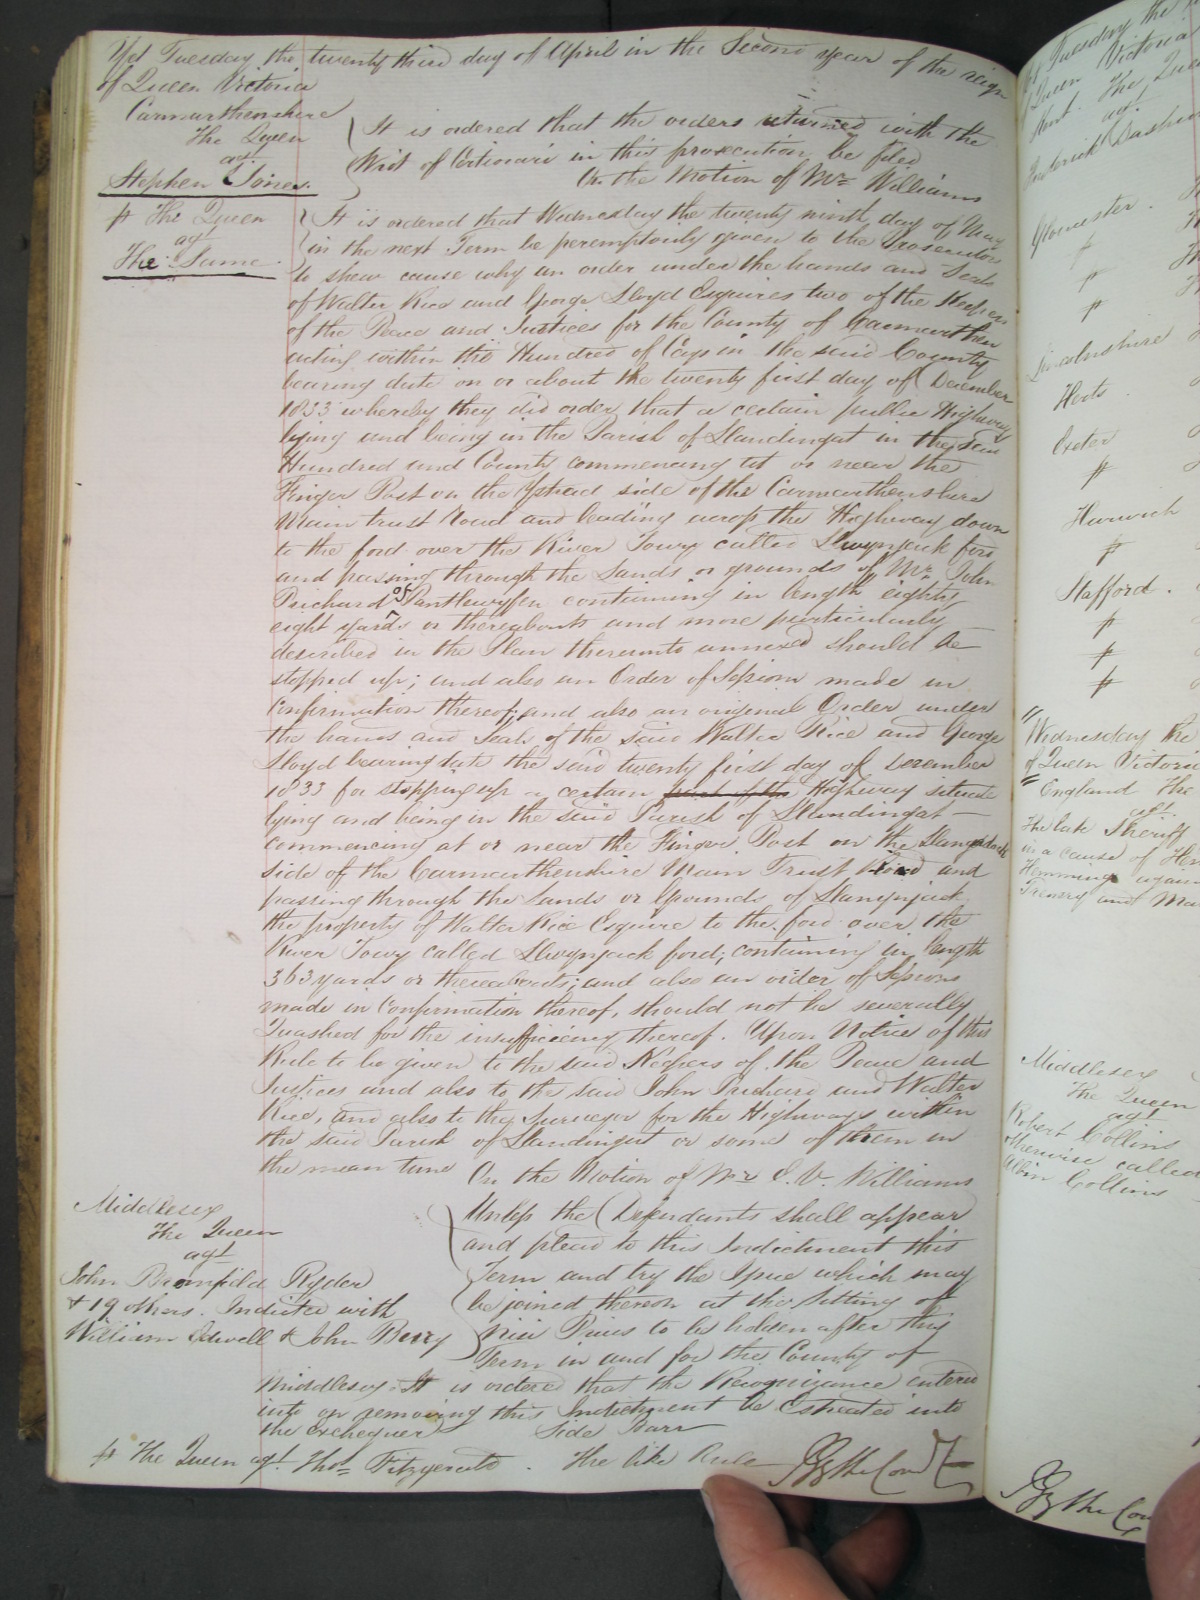 Yet Tuesday the twenty third day of April in the Second year of the reign
of Queen Victoria
Carmarthenshire
The Queen
agt
Stephen Jones.
It is ordered that the orders returned with the
Writ of Certiorari in this prosecution be filed
On the Motion of Mr Williams
The Queen
agt
The Same.
It is ordered that Wednesday the twenty ninth day of May
in the next Term be peremptorily given to the Prosecutor
to shew cause why an order under the hands and Seals
of Walter Rice and George Lloyd Esquires two of the Keepers
of the Peace and Justices for the County of Carmarthen
acting within the Hundred of Cayo in the said County
bearing date on or about the twenty first day of December
1833 whereby they did order that a certain public Highway
lying and being in the Parish of Llandingat in the said
Hundred and County commencing at or near the
Finger Post on the Ystrad side of the Carmarthenshire
Main trust road and leading across the Highway down
to the ford over the River Towy called Llwynjack ford
and passing through the Lands or grounds of Mr John
Prichard of containing in length eighty
eight yards or thereabouts and more particularly
described in the Plan thereunto annexed should be
stopped up; and also an Order of Sessions made in
Confirmation thereof; and also an original Order under
the hands and Seals of the said Walter Rice and George
Lloyd bearing date the said twenty first day of December
1833 for stopping up a certain Highway situate
lying and being in the said Parish of Llandingat
commencing at or near the Finger Post on the Llangadock
side of the Carmarthenshire Main Trust Road and
passing through the Lands or Grounds of Llwynjack
the property of Walter Rice Esquire to the ford over the
River Towy called Llwynjack ford; containing in length
363 yards or thereabouts; and also an order of Sessions
made in Confirmation thereof, should not be severally
Quashed for the insufficiency thereof. Upon Notice of this
Rule to be given to the said Keepers of the Peace and
Justices and also to the said John Prichard and Walter
Rice, and also to the Surveyor for the Highways within
the said Parish of Llandingat or some of them in
the mean time
On the Motion of Mr E. V. Williams
Middlesex
The Queen
agt
John Bromfield Ryder
& 19 others. Indicted with
William & John Berry
Unless the Defendants shall appear
and plead to this Indictment this
Term and try the Issue which may
be joined thereon at the Sitting of
Nisi Prius to be holden after this
Term in and for the County of
Middlesex It is ordered that the Recognizance entered
into on removing this Indictment be Estreated into
the Exchequer
Side Barr
The Queen agt Thos Fitzgerald. The like Rule
By the Court
Tuesday the
Queen Victoria
The Queen
agt
Gloucester.
Lincolnshire
Herts
Exeter
Harwich
Stafford.
Wednesday the
of Queen Victoria
England The
agt
The late Sheriff
in a cause of
Hemming against
and
Middlesex
The Queen
agt
Robert Collins
otherwise called
Albin Collins
By the Court